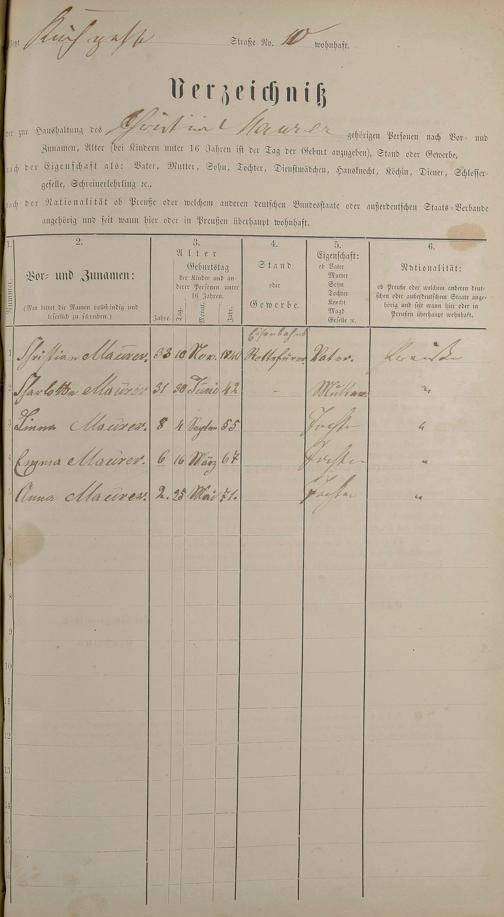 Straße No. 10 wohnhaft.
Verzeichniß
zur Haushaltung des Christian Maurer gehörigen Personen nach Vor- und
Zunamen, Alter (bei Kindern unter 16 Jahren ist der Tag der Geburt anzugeben), Stand oder Gewerbe,
nach der Eigenschaft als: Vater, Mutter, Sohn, Tochter, Dienstmädchen, Hausknecht, Köchin, Diener, Schlosser-
geselle, Schreinerlehrling ꝛc.,
nach der Nationalität ob Preuße oder welchem anderen deutschen Bundesstaate oder außerdeutschen Staats-Verbande
angehörig und seit wann hier oder in Preußen überhaupt wohnhaft.
1. 2. 3. 4. 5. 6.
Nummer. Vor- und Zunamen: (Man bittet die Namen vollständig und leserlich zu schreiben.) Alter Geburtstag der Kinder und anderer Personen unter 16 Jahren. Jahre. Tag. Monat. Jahr. Stand oder Gewerbe. Eigenschaft: ob Vater Mutter Sohn Tochter Knecht Magd Geselle ꝛc. Nationalität: ob Preuße oder welchem anderen deutschen oder außerdeutschen Staate angehörig und seit wann hier oder in Preußen überhaupt wohnhaft.
Eisenbahn
1 Christian Maurer. 33 10 Nov. 1840 Rottführer Vater. Preuße
2 Charlotte Maurer 31 30 Juni 42 - Mutter "
3 Linna Maurer. 8 4 55 Tochter "
4 Emma Maurer. 6 16 März 67 Tochter "
5 Anna Maurer. 2. 25 Mai 71. Tochter "
6
7
8
9
10
11
12
13